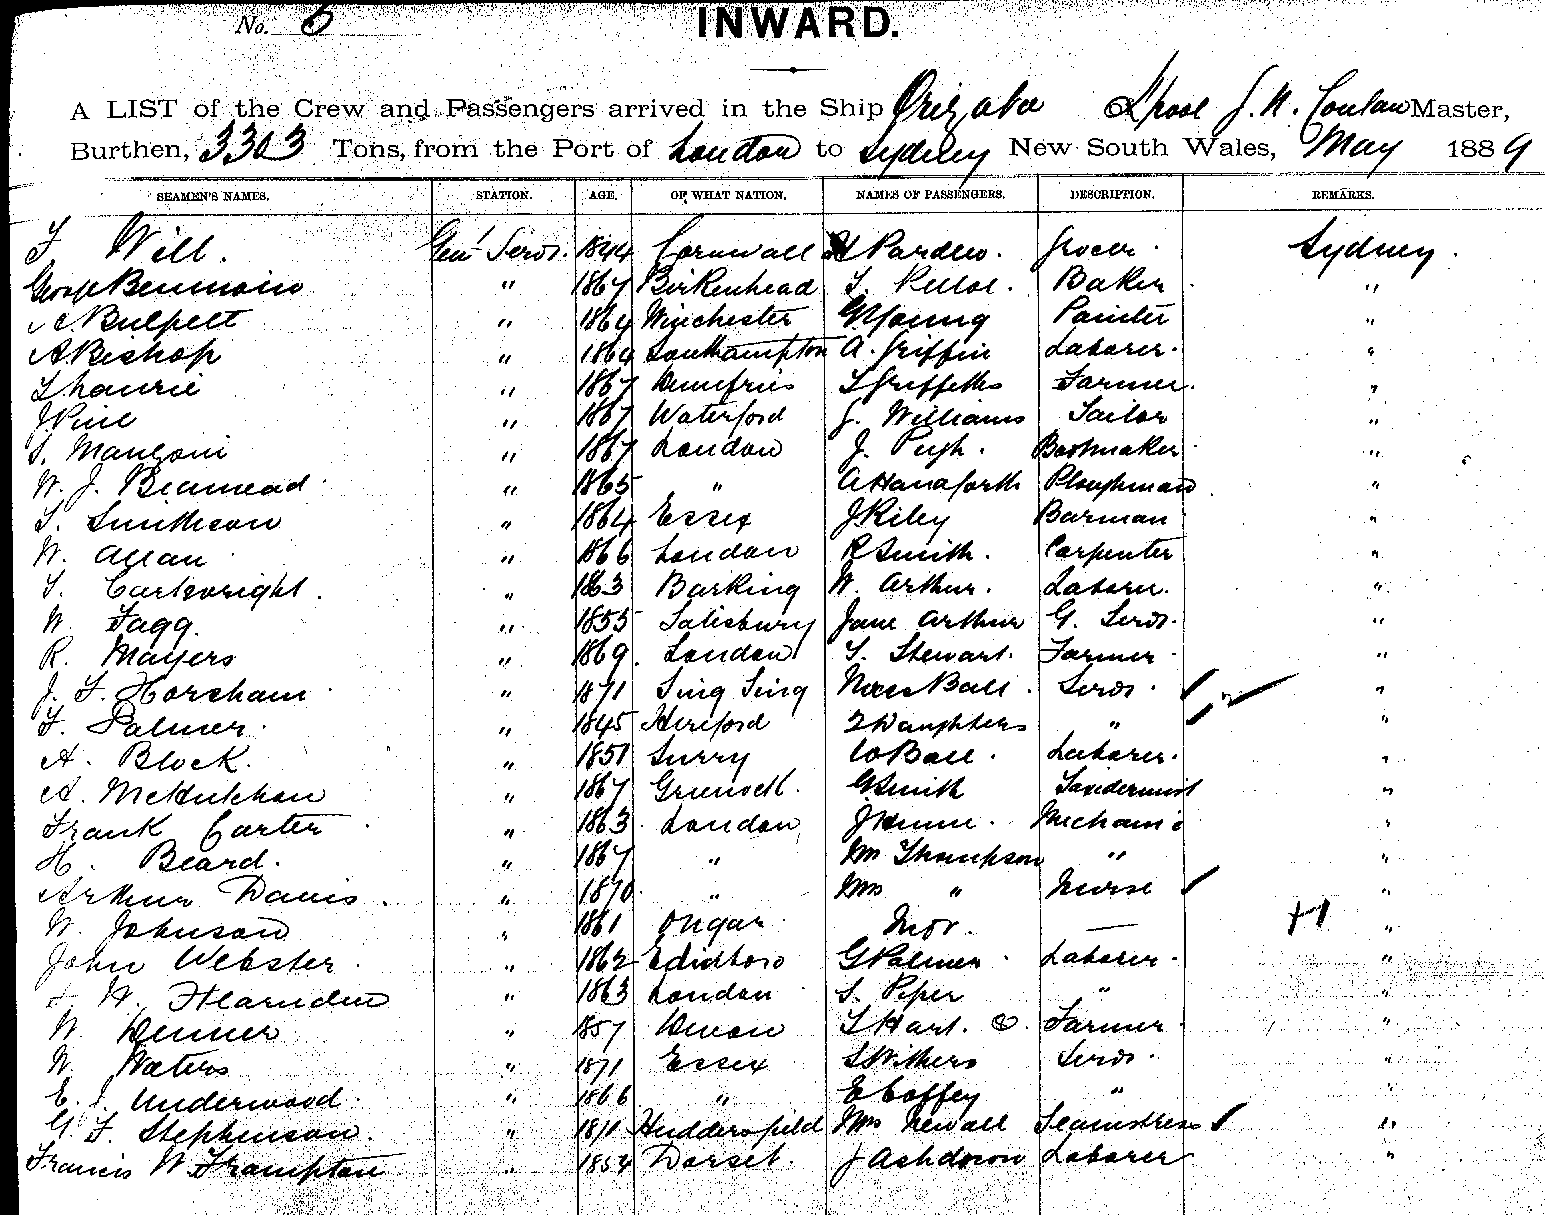 No. 6
INWARD.
A LIST of the Crew and Passengers arrived in the Ship Orizaba Lpool J. N. Conlan Master,
Burthen, 3303 Tons, from the Port of London to Sydney New South Wales, May 1889
SEAMEN'S NAMES. STATION. AGE. OF WHAT NATION. NAMES OF PASSENGERS. DESCRIPTION. REMARKS.
F Will. Genl Servt. 1844 Cornwall H Pardew. Grocer. Sydney.
" 1867 Birkenhead Baker "
Bulpett " 1864 Winchester G Young Painter "
A Bishop " 1864 Southampton A. Griffin Laborer. "
T Laurie " 1867 Dumfries T Griffeths Farmer. "
J Pine " 1867 Waterford J. Williams Tailor "
S. Mangoni " 1867 London J. Pugh. Bootmaker "
W. J. Beamead " 1865 " A Hanaforth Ploughman "
S. Smithson " 1864 Essex J Riley Barman "
W. Allan " 1866 London R Smith. Carpenter "
T. Cartwright. " 1863 Barking W. Arthur. Laborer. "
W. Fagg. " 1855 Salisbury Jane Arthur G. Servt. "
R. Mayers " 1869. London T. Stewart. Farmer "
J. F. Horsham " 1871 Sing Sing Ball. Servt. "
F. Palmer. " 1845 Hereford 2 Daughters " "
A. Block. " 1851 Surry W Ball. Laborer. "
A. McHutchon " 1867 G Smith Taxidermist "
Frank Carter " 1863 London J Hume. Mechanic "
H. Beard. " 1867 " Wm Thompson " "
Arthur Davis. " 1870 " Mrs " Nurse "
W. Johnson " 1861 Ongar Mor. — "
John Webster " 1862 Edinboro G Palmer Laborer. "
W. Hearnden " 1863 London S. Piper " "
W. Denner " 1857 Devon T Hart. Farmer. "
W. Waters " 1871 Essex S Withers Servt. "
E. J. Underwood. " 1866 " E Coffey " "
G. F. Stephenson. " 1871 Huddersfield Mrs Newall Seamstress "
Francis W. Frampton " 1854 Dorset. J Ashdown Laborer "